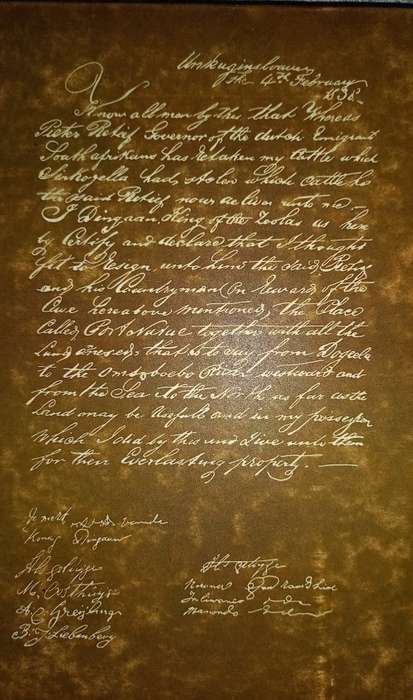 Unkuginsloave
the 4th February
1838
Know all men by this that Whereas
Pieter Retief Governor of the dutch Emigrant
South afrikans has Retaken my Cattle which
Sinkonyella had stolen which cattle he
the said Retief now deliver unto me
I Dingaan, King of the Zoolas as here
by Certify and declare that I thought
fit to Resign unto him the said Retief
and his Countrymen on Reward of the
Case hereabove mentioned the Place
Called Port Natal together with all the
Land annexed that is to say from Dogeela
to the Omsoboebo River westward and
from the Sea to the North as far as the
Land may be Usefull and in my possession
Which I did by this and Give unto them
for their Everlasting property.
De merk
Koning Dingaan
M. Oosthuyse
A.C. Greyling
B.J. Liebenberg
Moaro
Juliwanco
Manondo